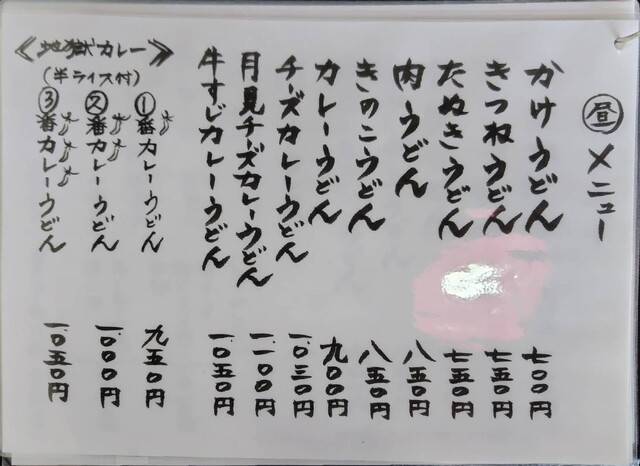 昼メニュー
かけうどん 七〇〇円
きつねうどん 七五〇円
たぬきうどん 七五〇円
肉うどん 八五〇円
きのこうどん 八五〇円
カレーうどん 九〇〇円
チーズカレーうどん 一.〇三〇円
月見チーズカレーうどん 一.一〇〇円
牛すじカレーうどん 一.〇五〇円
《地獄カレー》
(半ライス付)
①番カレーうどん 九五〇円
②番カレーうどん 一.〇〇〇円
③番カレーうどん 一.〇五〇円